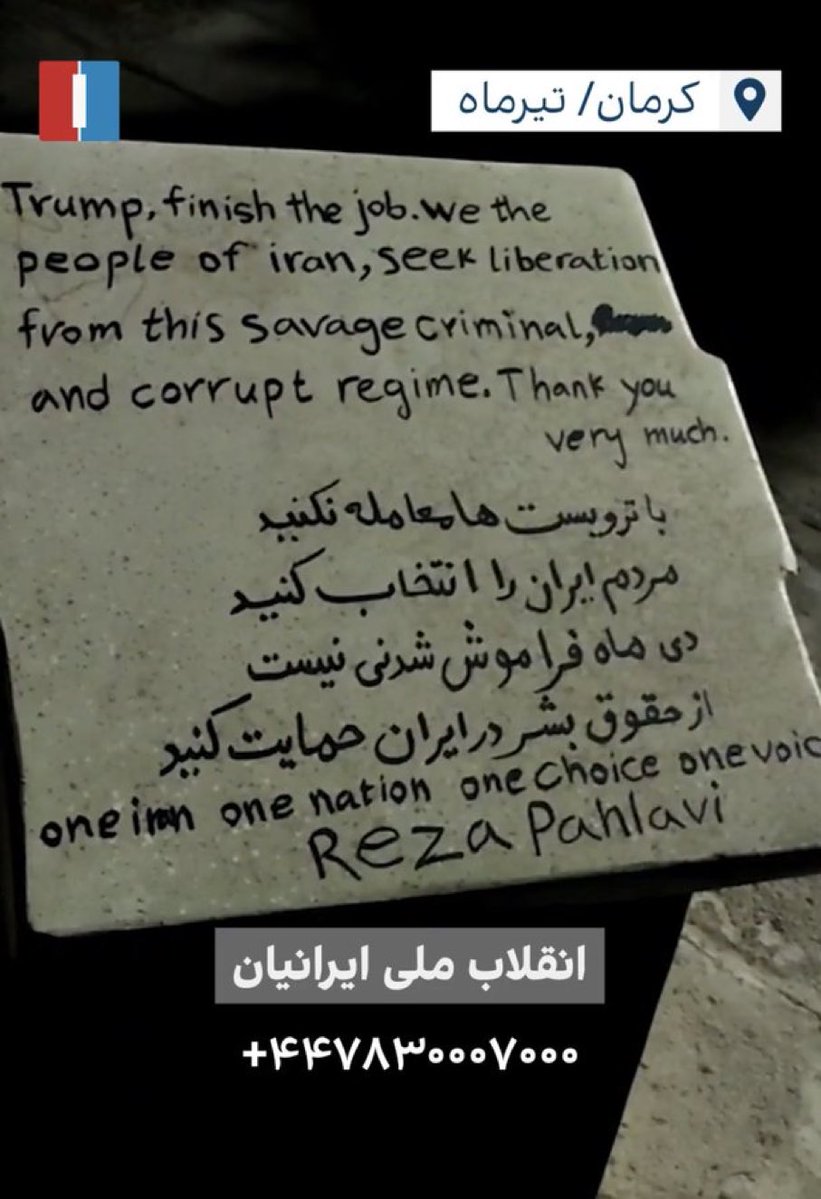 کرمان/ تیرماه
Trump, finish the job. we the
people of iran, seek liberation
from this savage criminal,
and corrupt regime. Thank you
very much.
با ترویست ها معامله نکنید
مردم ایران را انتخاب کنید
دی ماه فراموش شدنی نیست
از حقوق بشر در ایران حمایت کنید
one iran one nation one choice one voic
Reza Pahlavi
انقلاب ملی ایرانیان
+۴۴۷۸۳۰۰۰۷۰۰۰